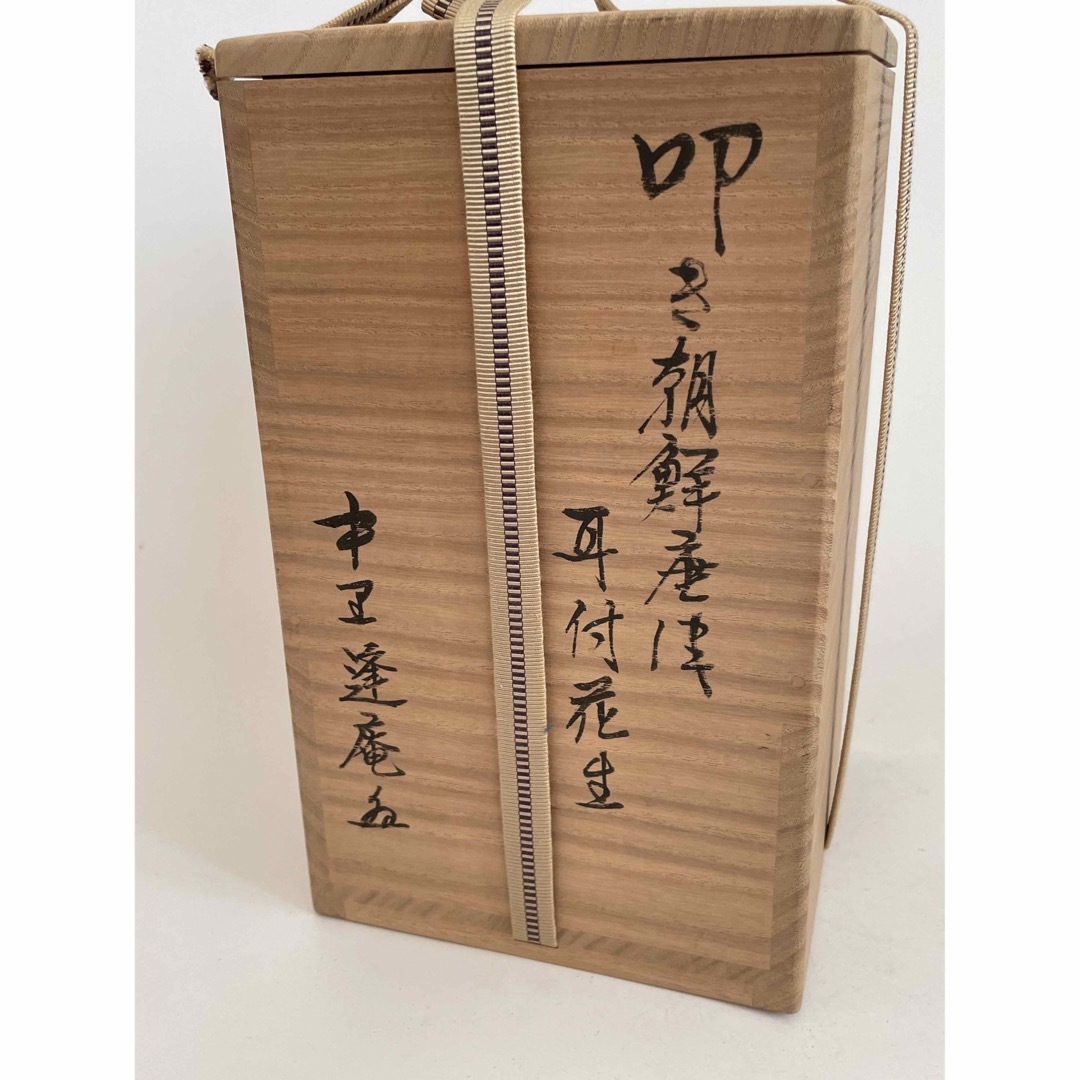 叩き朝鮮唐津
耳付花生
中里逢庵